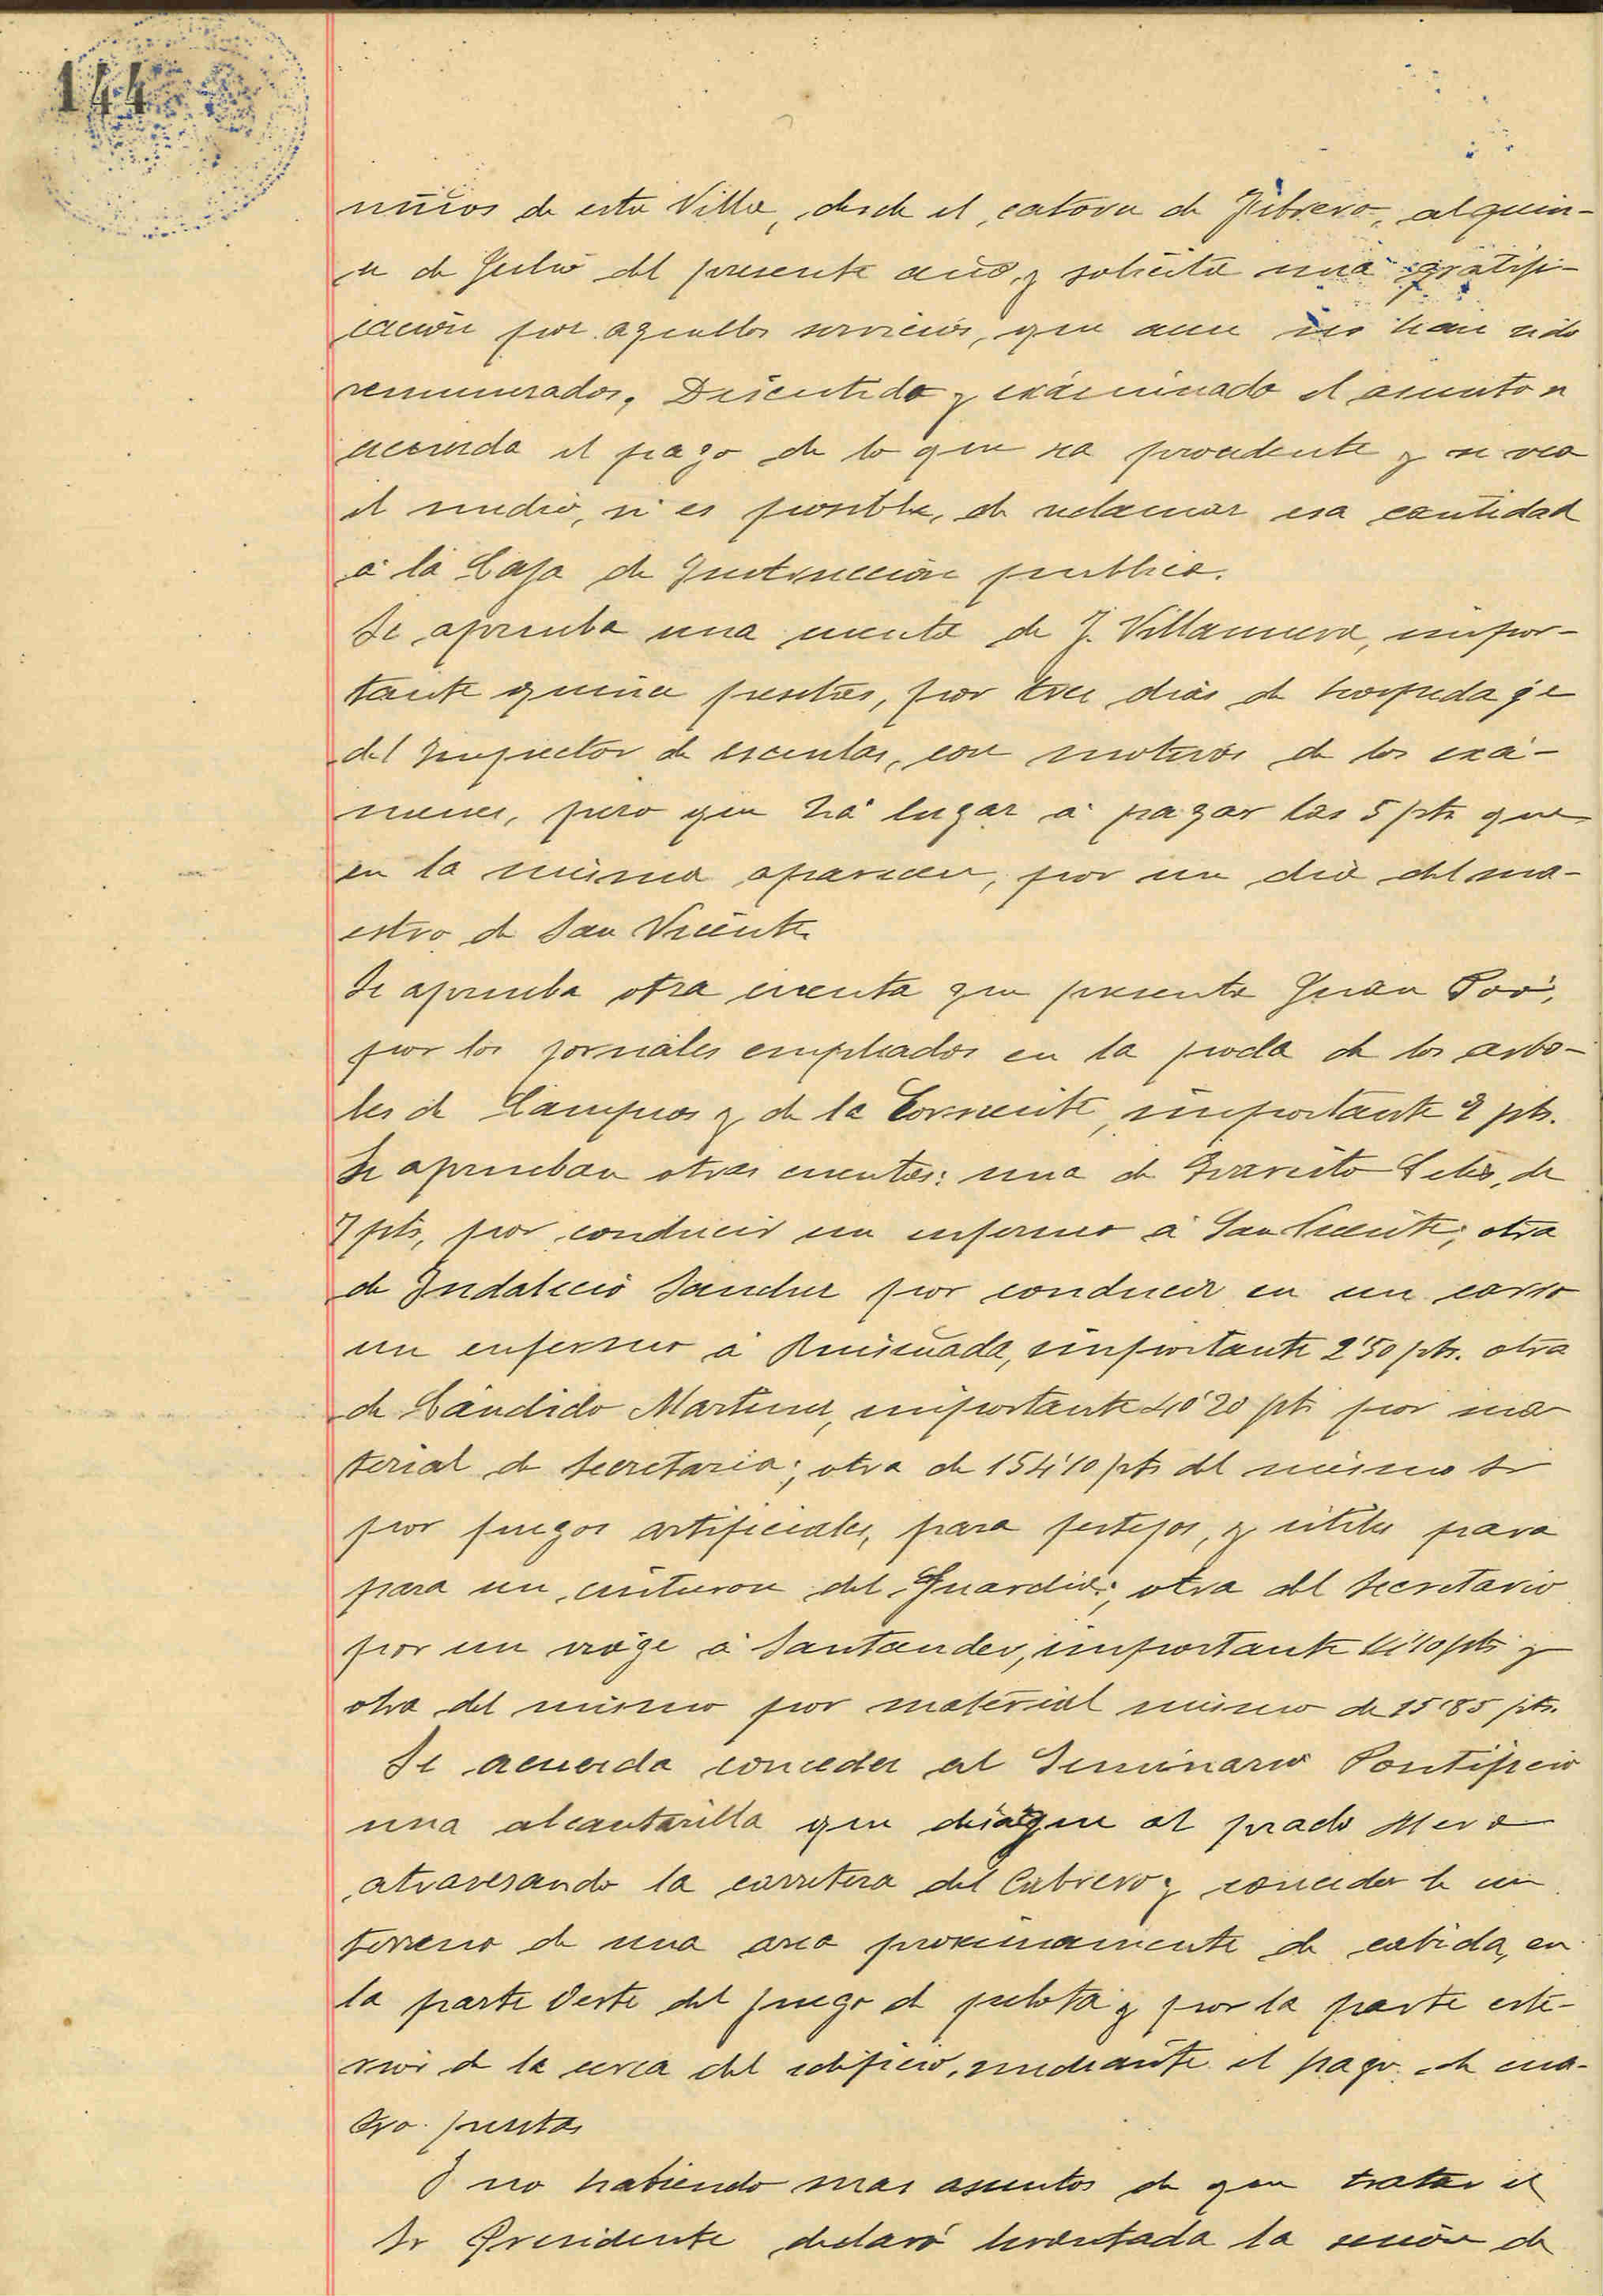 144
niños de esta Villa, desde el catorce de Febrero, al quin-
ce de Julio del presente año, y solicita una gratifi-
cación por aquellos servicios, que aun no han sido
remunerados. Discutido y exáminado el asunto se
acuerda el pago de lo que sea procedente y se vea
el medio, si es posible, de reclamar esa cantidad
á la Caja de Instrucción publica.
Se aprueba una cuenta de J. Villanueva, impor-
tante quince pesetas, por tres dias de hospedage
del Inspector de escuelas, con motivos de los exá-
menes, pero que há lugar á pagar las 5 pts que
en la misma aparecen, por un dia del ma-
estro de San Vicente.
Se aprueba otra cuenta que presenta Juan
por los jornales empleados en la poda de los arbo-
les de Campios y de la Corriente, importante pts.
Se aprueban otras cuentas: una de Evaristo Celis, de
7 pts, por conducir un enfermo á San Vicente; otra
de Indalecio Sanchez por conducir en un carro
un enfermo á Ruiseñada, importante 2'50 pts. otra
de Cándido Martinez, importante 40'20 pts por ma
terial de Secretaria; otra de 154'10 pts del mismo Sr
por fuegos artificiales, para festejos, y utiles para
para un cinturon del Guardia; otra del Secretario
por un viage á Santander, importante pts y
otra del mismo por material mismo de 15'85 pts.
Se acuerda conceder al Seminario Pontificio
una alcantarilla que desague al prado
atravesando la carretera del Cabrero y conceder le un
terreno de una area proximamente de cabida, en
la parte Oeste del juego de pelota y por la parte este-
rior de la cerca del edificio, mediante el pago de cua-
tro pesetas
Y no habiendo mas asuntos de que tratar el
Sr Presidente declaró levantada la sesión de